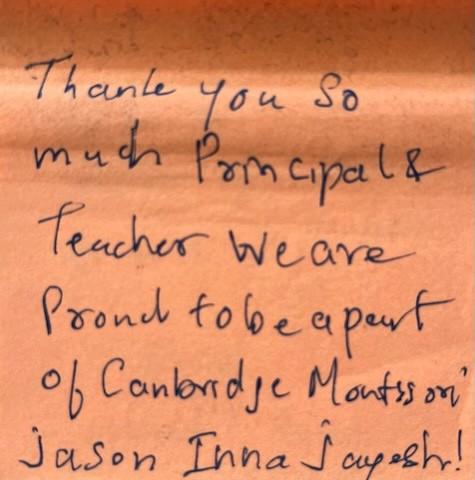 Thank you So
much Principal &
Teacher We are
Proud to be a part
of Cambridge Montssori
Jason Inna Jayesh!